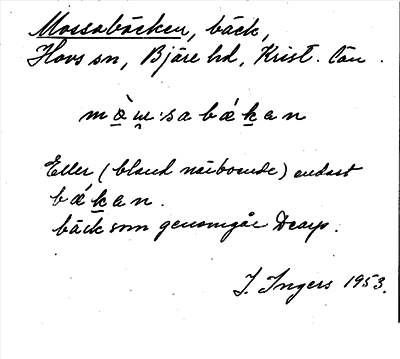 Mossabäcken, bäck,
Hovs sn, Bjäre hd, Krist. län.
mò̲u̯·sabǽk̲an
Eller (bland närboende) endast
bǽk̲an.
bäck som genomgår Dearp.
I. Ingers 1953.